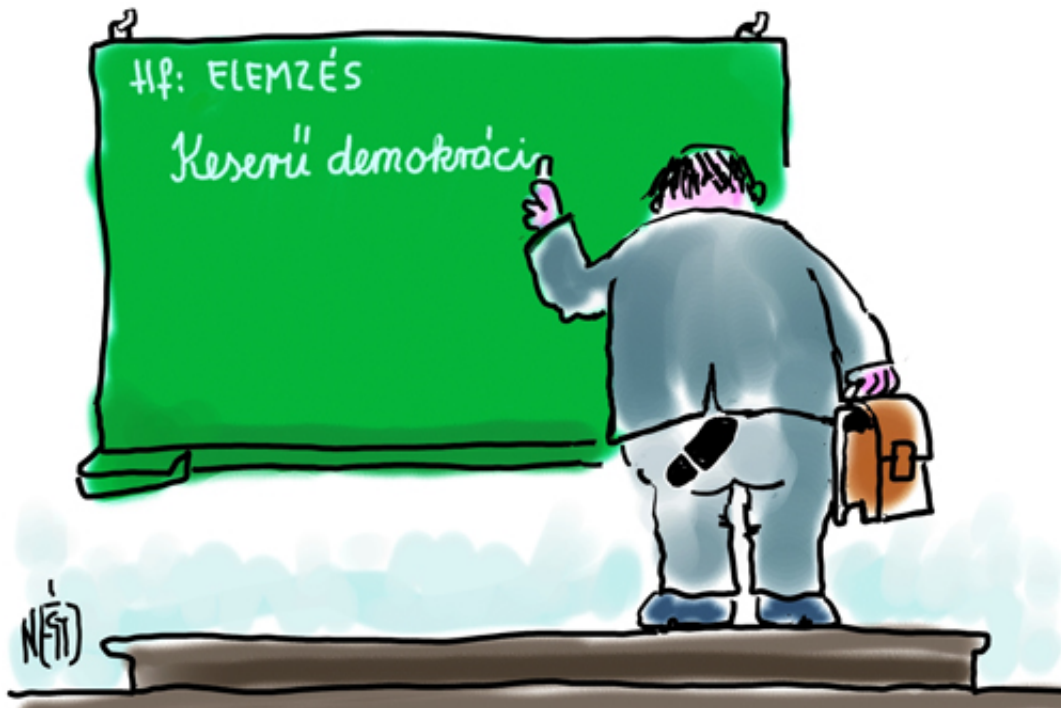 Hf: ELEMZÉS
Keserű demokráci